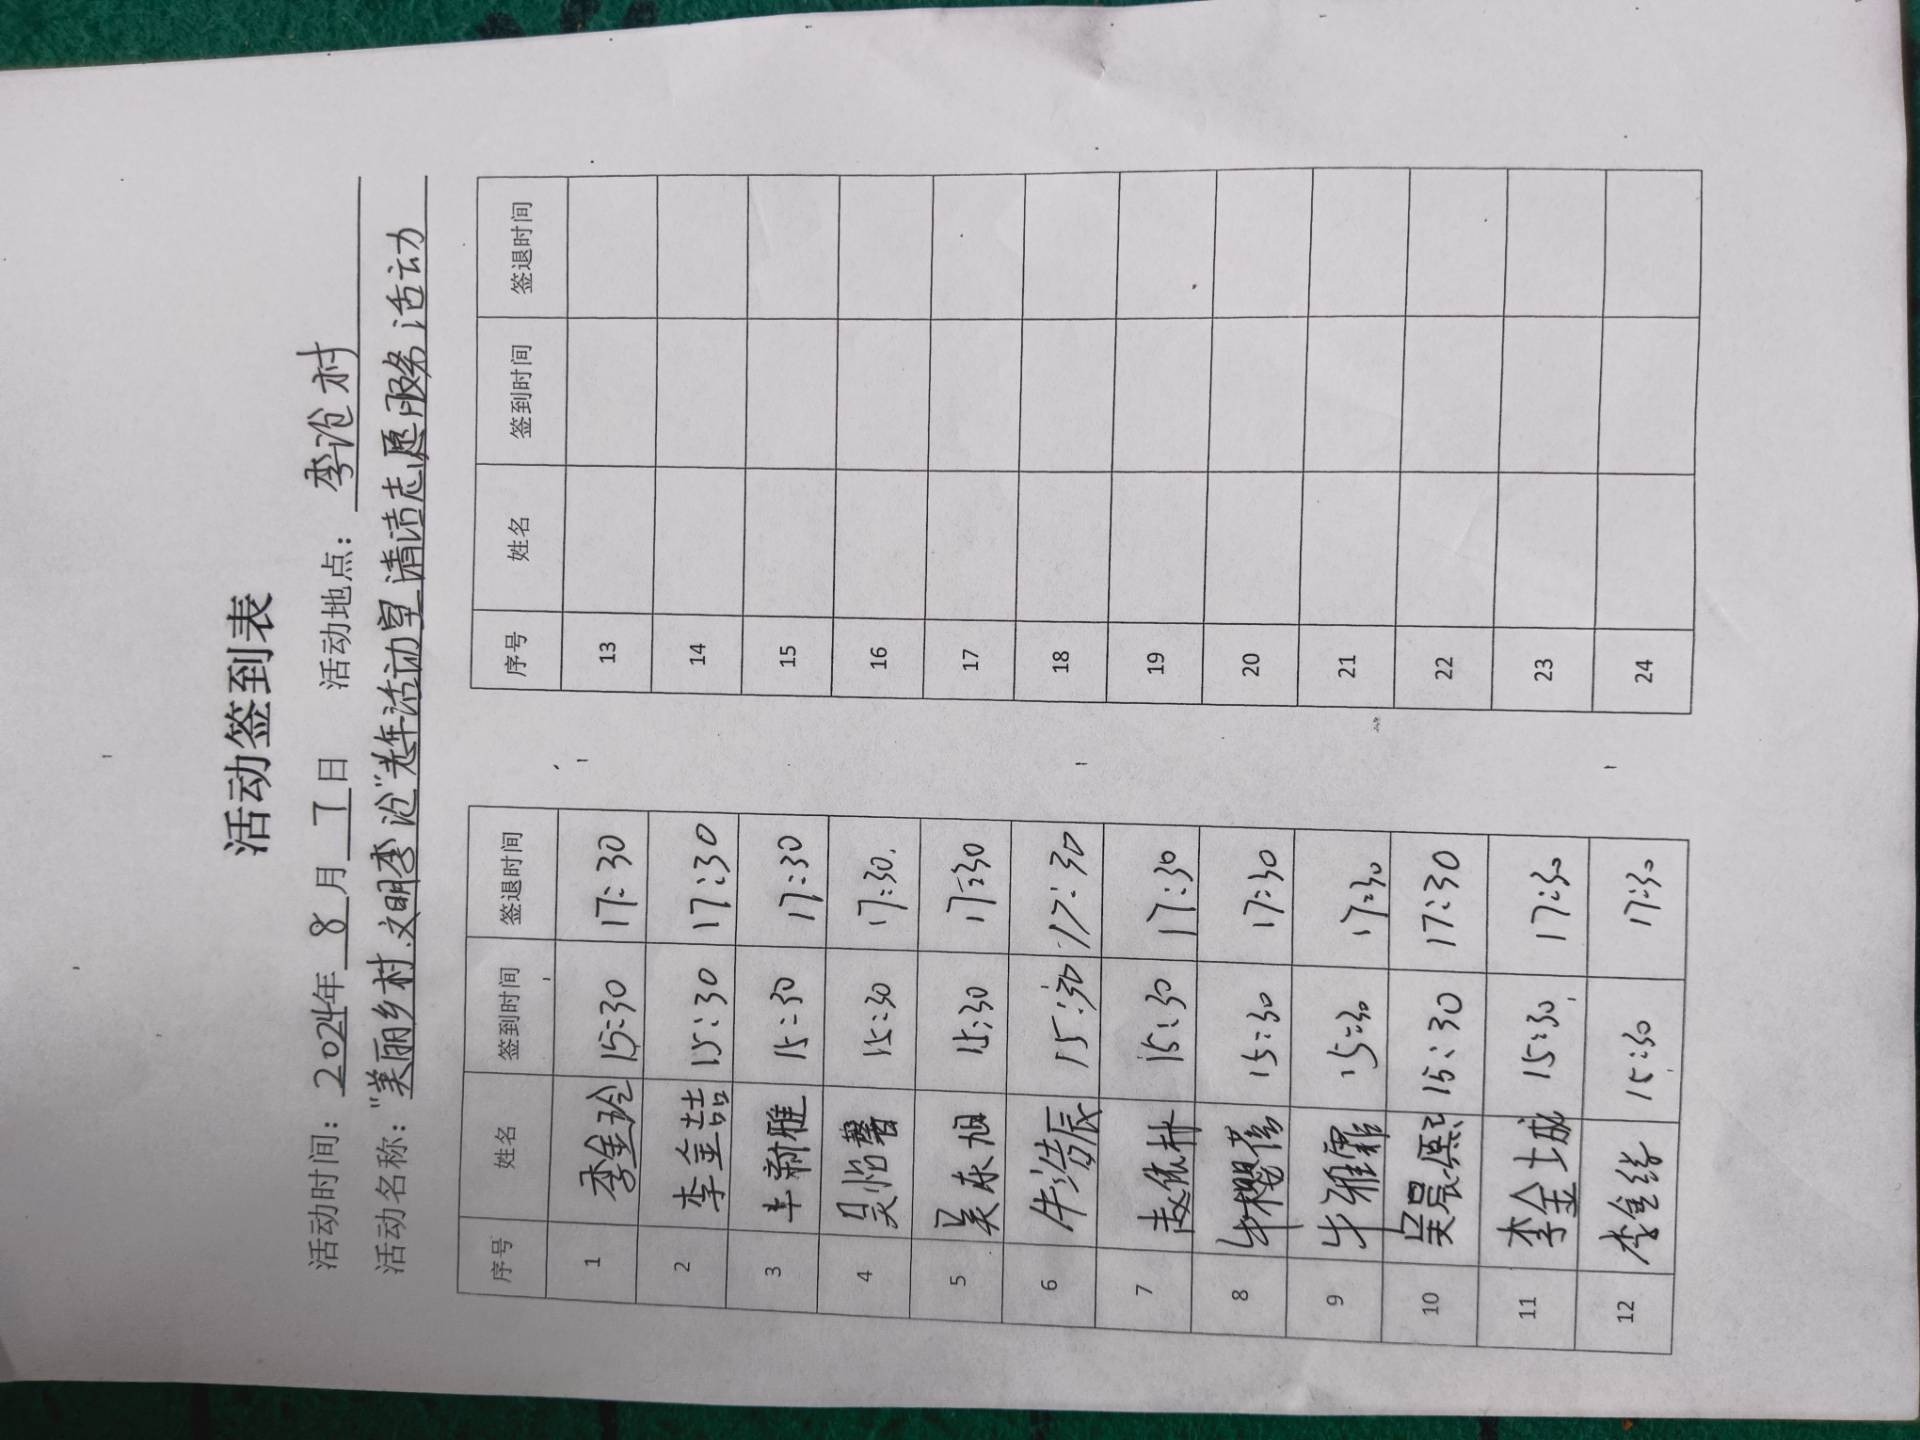 活动签到表
活动时间：2024年8月7日 活动地点：李沧村
活动名称："美丽乡村.文明李沧"老年活动室清洁志愿服务活动
序号 姓名 签到时间 签退时间 序号 姓名 签到时间 签退时间
1 李金玲 15:30 17:30 13
2 李金喆 15:30 17:30 14
3 车新雅 15:30 17:30 15
4 吴怡馨 15:30 17:30. 16
5 吴东旭 15:30 17:30 17
6 牛浩辰 15:30 17:30 18
7 赵依林 15:30 17:30 19
8 牛樱 15:30 17:30 20
9 牛雅霏 15:30 17:30 21
10 吴晨熙 15:30 17:30 22
11 李金土成 15:30 17:30 23
12 李金 15:30 17:30 24